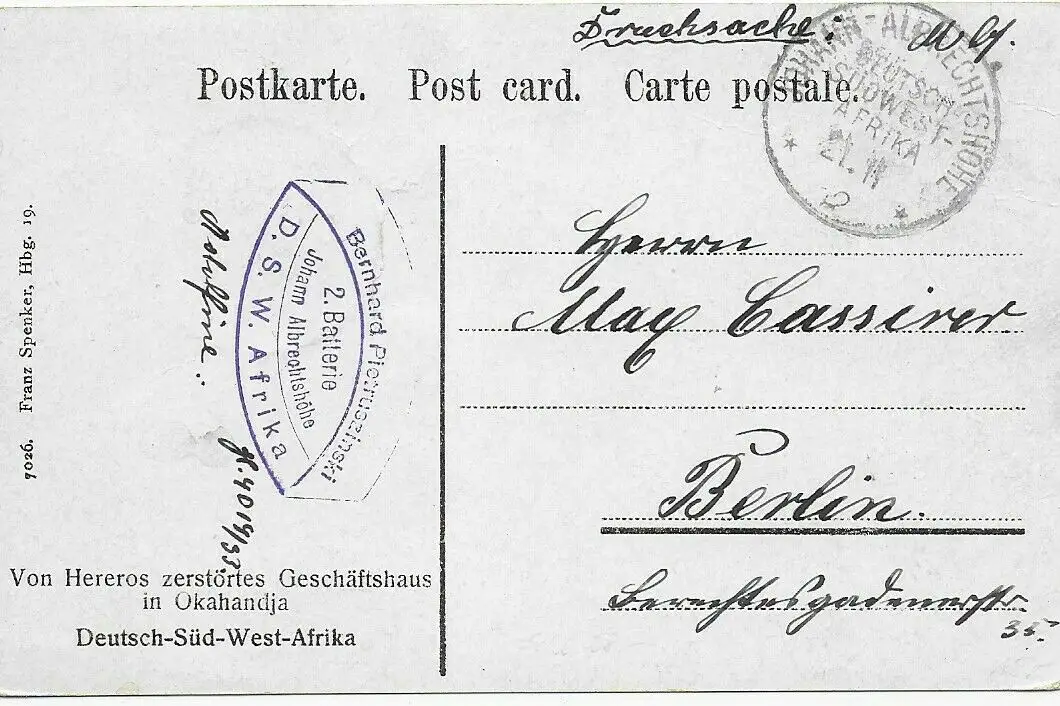 Drucksache.
Postkarte. Post card. Carte postale.
JOHANN-ALBRECHTSHÖHE
DEUTSCH-
SÜDWEST-
AFRIKA
21. 11
Bernhard Pietruszinski
2. Batterie
Johann Albrechtshöhe
D. S. W. Afrika
7026. Franz Spenker, Hbg. 19.
Herrn
Max Cassirer
Berlin.
Berechtesgadenerstr.
35.
Von Hereros zerstörtes Geschäftshaus
in Okahandja
Deutsch-Süd-West-Afrika